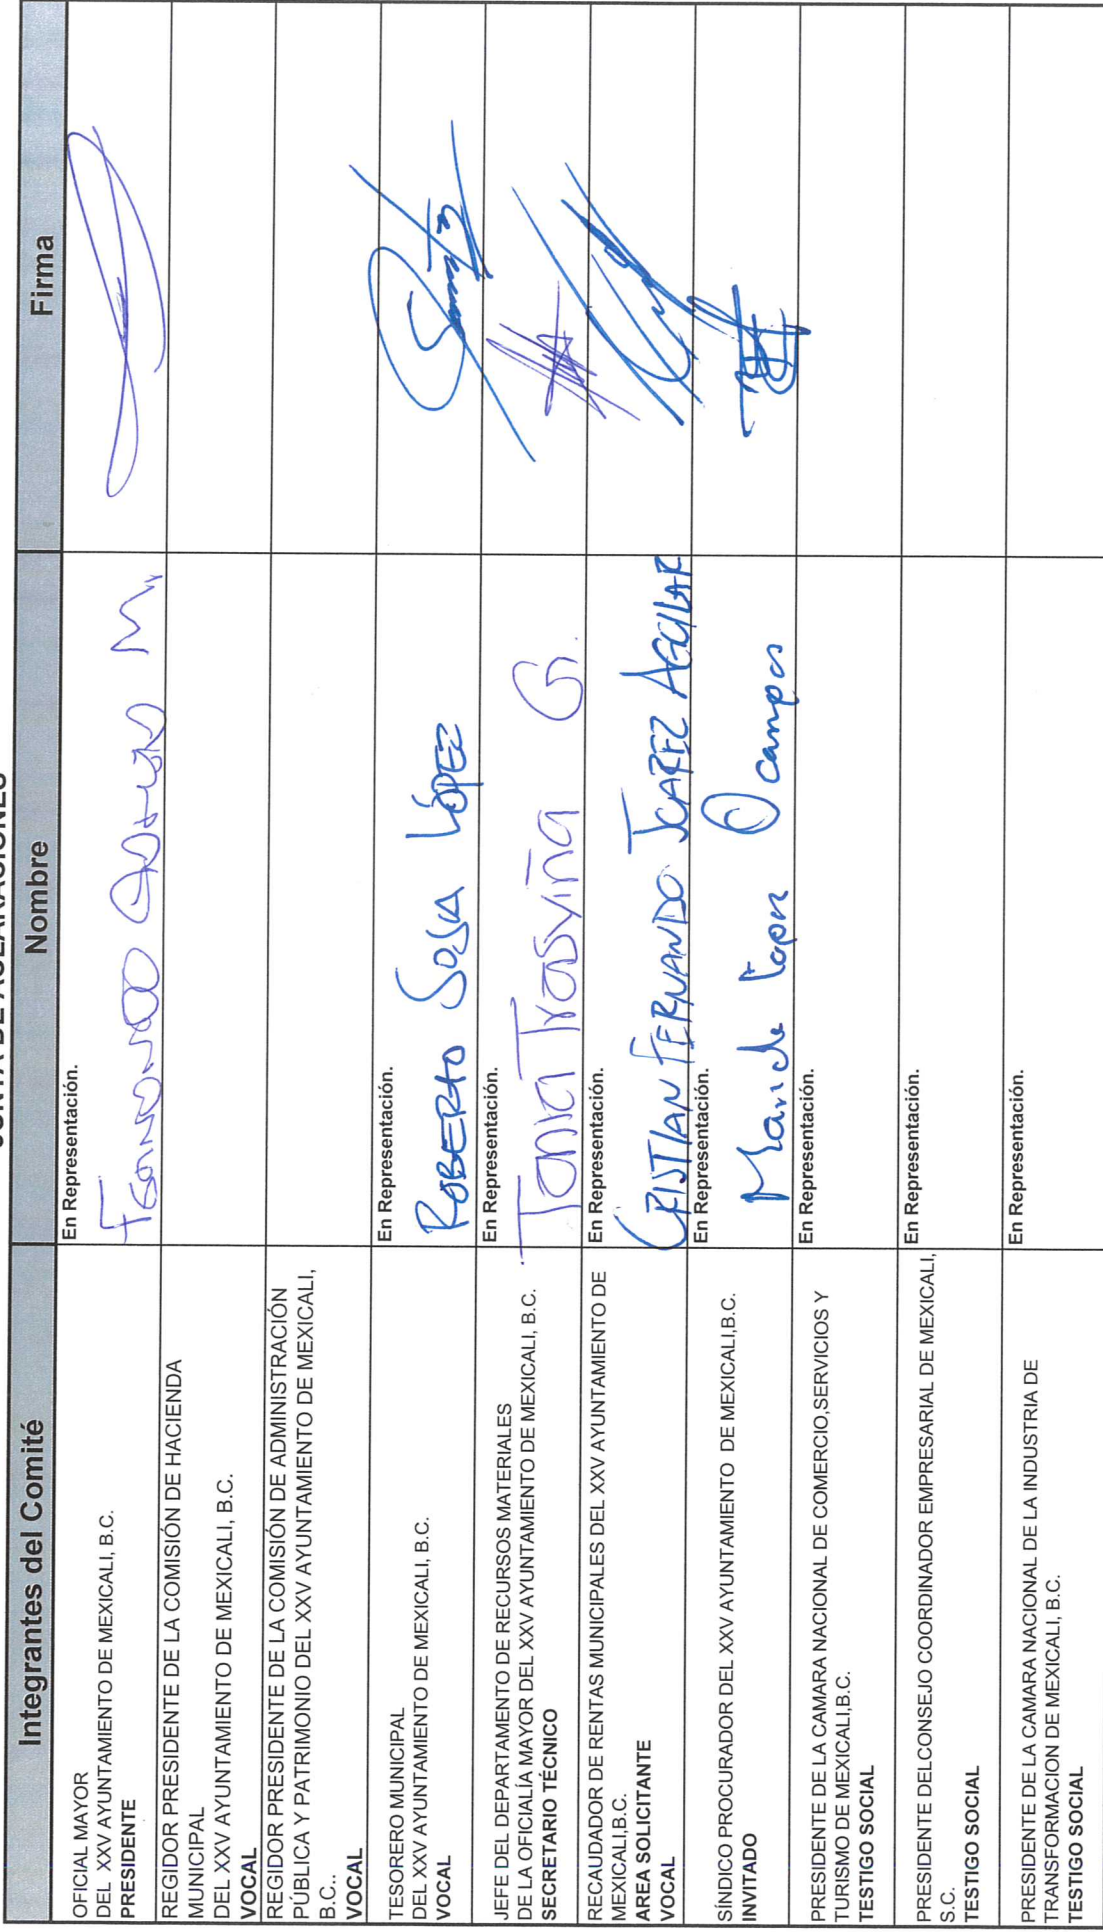 JUNTA DE ACLARACIONES
Integrantes del Comité Nombre Firma
OFICIAL MAYOR
DEL XXV AYUNTAMIENTO DE MEXICALI, B.C.
PRESIDENTE
En Representación.
REGIDOR PRESIDENTE DE LA COMISIÓN DE HACIENDA
MUNICIPAL
DEL XXV AYUNTAMIENTO DE MEXICALI, B.C.
VOCAL
REGIDOR PRESIDENTE DE LA COMISIÓN DE ADMINISTRACIÓN
PÚBLICA Y PATRIMONIO DEL XXV AYUNTAMIENTO DE MEXICALI,
B.C..
VOCAL
TESORERO MUNICIPAL
DEL XXV AYUNTAMIENTO DE MEXICALI, B.C.
VOCAL
En Representación.
ROBERTO SOSA LÓPEZ
JEFE DEL DEPARTAMENTO DE RECURSOS MATERIALES
DE LA OFICIALÍA MAYOR DEL XXV AYUNTAMIENTO DE MEXICALI, B.C.
SECRETARIO TÉCNICO
En Representación.
Tania Trasviña G.
RECAUDADOR DE RENTAS MUNICIPALES DEL XXV AYUNTAMIENTO DE
MEXICALI,B.C.
AREA SOLICITANTE
VOCAL
En Representación.
CRISTIAN FERNANDO JUAREZ AGUILAR
SÍNDICO PROCURADOR DEL XXV AYUNTAMIENTO DE MEXICALI,B.C.
INVITADO
En Representación.
Ocampos
PRESIDENTE DE LA CAMARA NACIONAL DE COMERCIO,SERVICIOS Y
TURISMO DE MEXICALI,B.C.
TESTIGO SOCIAL
En Representación.
PRESIDENTE DELCONSEJO COORDINADOR EMPRESARIAL DE MEXICALI,
S.C.
TESTIGO SOCIAL
En Representación.
PRESIDENTE DE LA CAMARA NACIONAL DE LA INDUSTRIA DE
TRANSFORMACION DE MEXICALI, B.C.
TESTIGO SOCIAL
En Representación.